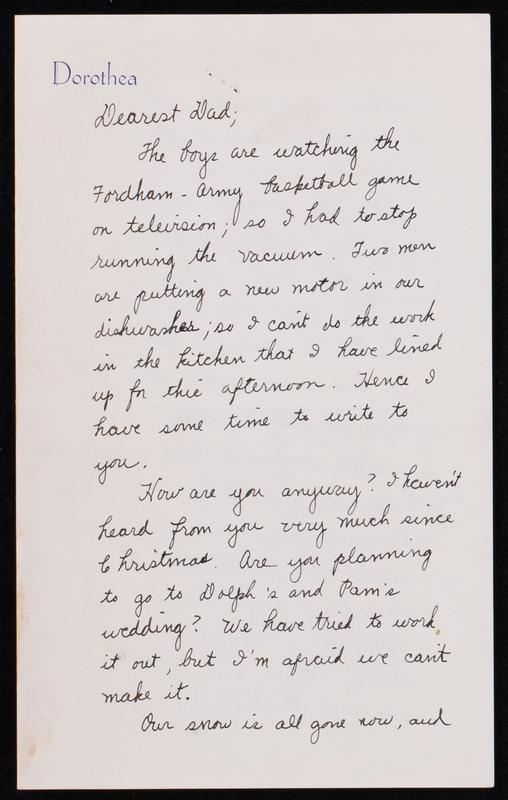 Dorothea
Dearest Dad;
The boys are watching the
Fordham - Army basketball game
on television; so I had to stop
running the vacuum. Two men
are putting a new motor in our
dishwasher; so I can't do the work
in the kitchen that I have lined
up for this afternoon. Hence I
have some time to write to
you.
How are you anyway? I haven't
heard from you very much since
Christmas. Are you planning
to go to Dolph's and Pam's
wedding? We have tried to work
it out, but I'm afraid we can't
make it.
Our snow is all gone now, and